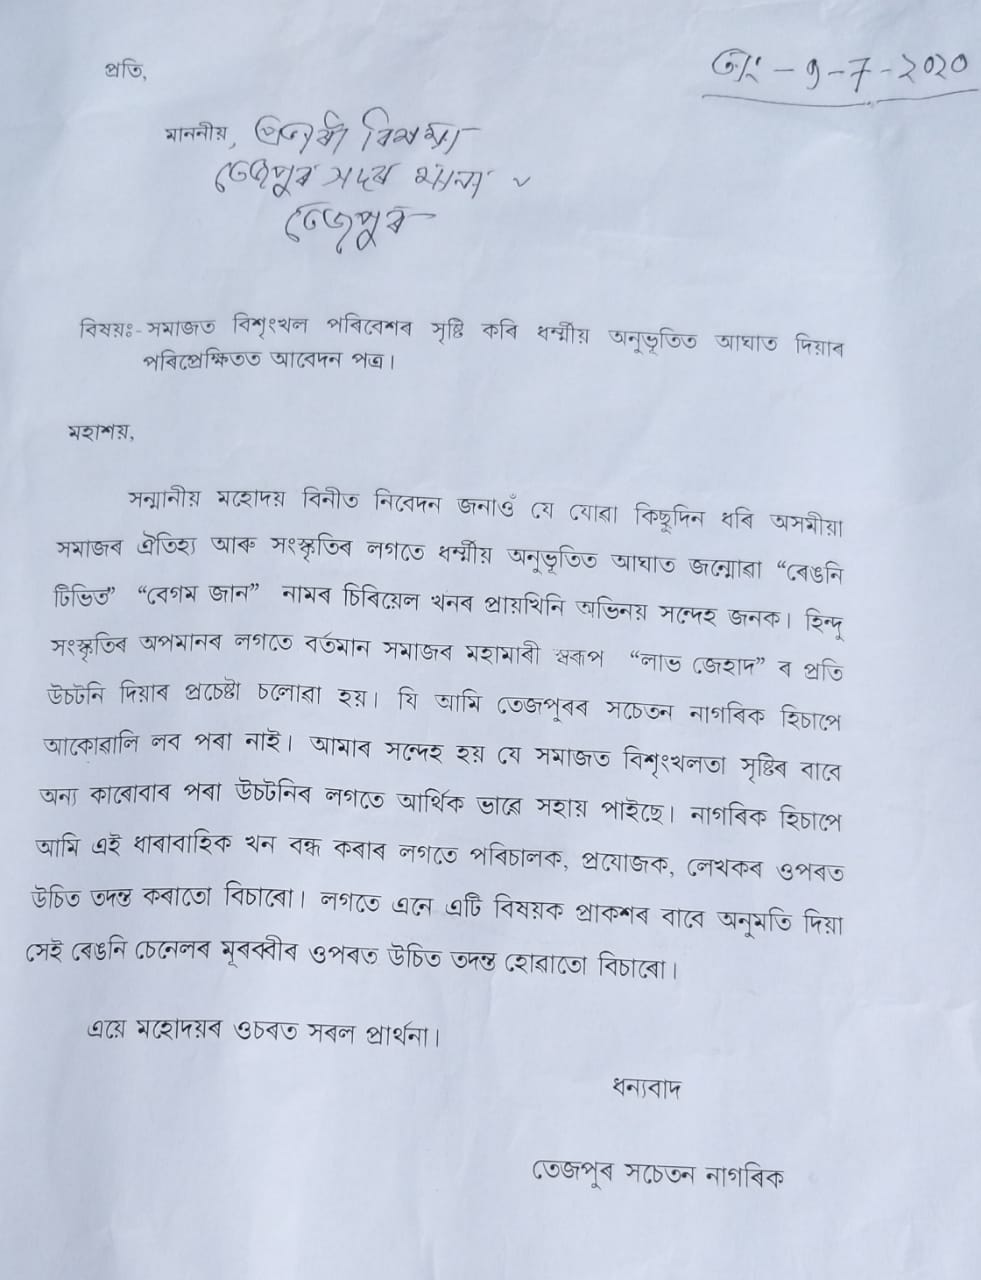 প্ৰতি,
তাং - ৭-7-২০২০
মাননীয়, ভাৰপ্ৰাপ্ত বিষয়া
তেজপুৰ সদৰ থানা
তেজপুৰ
বিষয়ঃ- সমাজত বিশৃংখল পৰিবেশৰ সৃষ্টি কৰি ধৰ্ম্মীয় অনুভূতিত আঘাত দিয়াৰ
পৰিপ্ৰেক্ষিতত আবেদন পত্ৰ।
মহাশয়,
সন্মানীয় মহোদয় বিনীত নিবেদন জনাওঁ যে যোৱা কিছুদিন ধৰি অসমীয়া
সমাজৰ ঐতিহ্য আৰু সংস্কৃতিৰ লগতে ধৰ্ম্মীয় অনুভূতিত আঘাত জন্মোৱা “ৰেঙনি
টিভিত” “বেগম জান” নামৰ চিৰিয়েল খনৰ প্ৰায়খিনি অভিনয় সন্দেহ জনক। হিন্দু
সংস্কৃতিৰ অপমানৰ লগতে বৰ্তমান সমাজৰ মহামাৰী স্বৰূপ “লাভ জেহাদ” ৰ প্ৰতি
উচটনি দিয়াৰ প্ৰচেষ্টা চলোৱা হয়। যি আমি তেজপুৰৰ সচেতন নাগৰিক হিচাপে
আকোৱালি লব পৰা নাই। আমাৰ সন্দেহ হয় যে সমাজত বিশৃংখলতা সৃষ্টিৰ বাবে
অন্য কাৰোবাৰ পৰা উচটনিৰ লগতে আৰ্থিক ভাৱে সহায় পাইছে। নাগৰিক হিচাপে
আমি এই ধাৰাবাহিক খন বন্ধ কৰাৰ লগতে পৰিচালক, প্ৰযোজক, লেখকৰ ওপৰত
উচিত তদন্ত কৰাতো বিচাৰো। লগতে এনে এটি বিষয়ক প্ৰাকশৰ বাবে অনুমতি দিয়া
সেই ৰেঙনি চেনেলৰ মূৰব্বীৰ ওপৰত উচিত তদন্ত হোৱাতো বিচাৰো।
এয়ে মহোদয়ৰ ওচৰত সৰল প্ৰাৰ্থনা।
ধন্যবাদ
তেজপুৰ সচেতন নাগৰিক